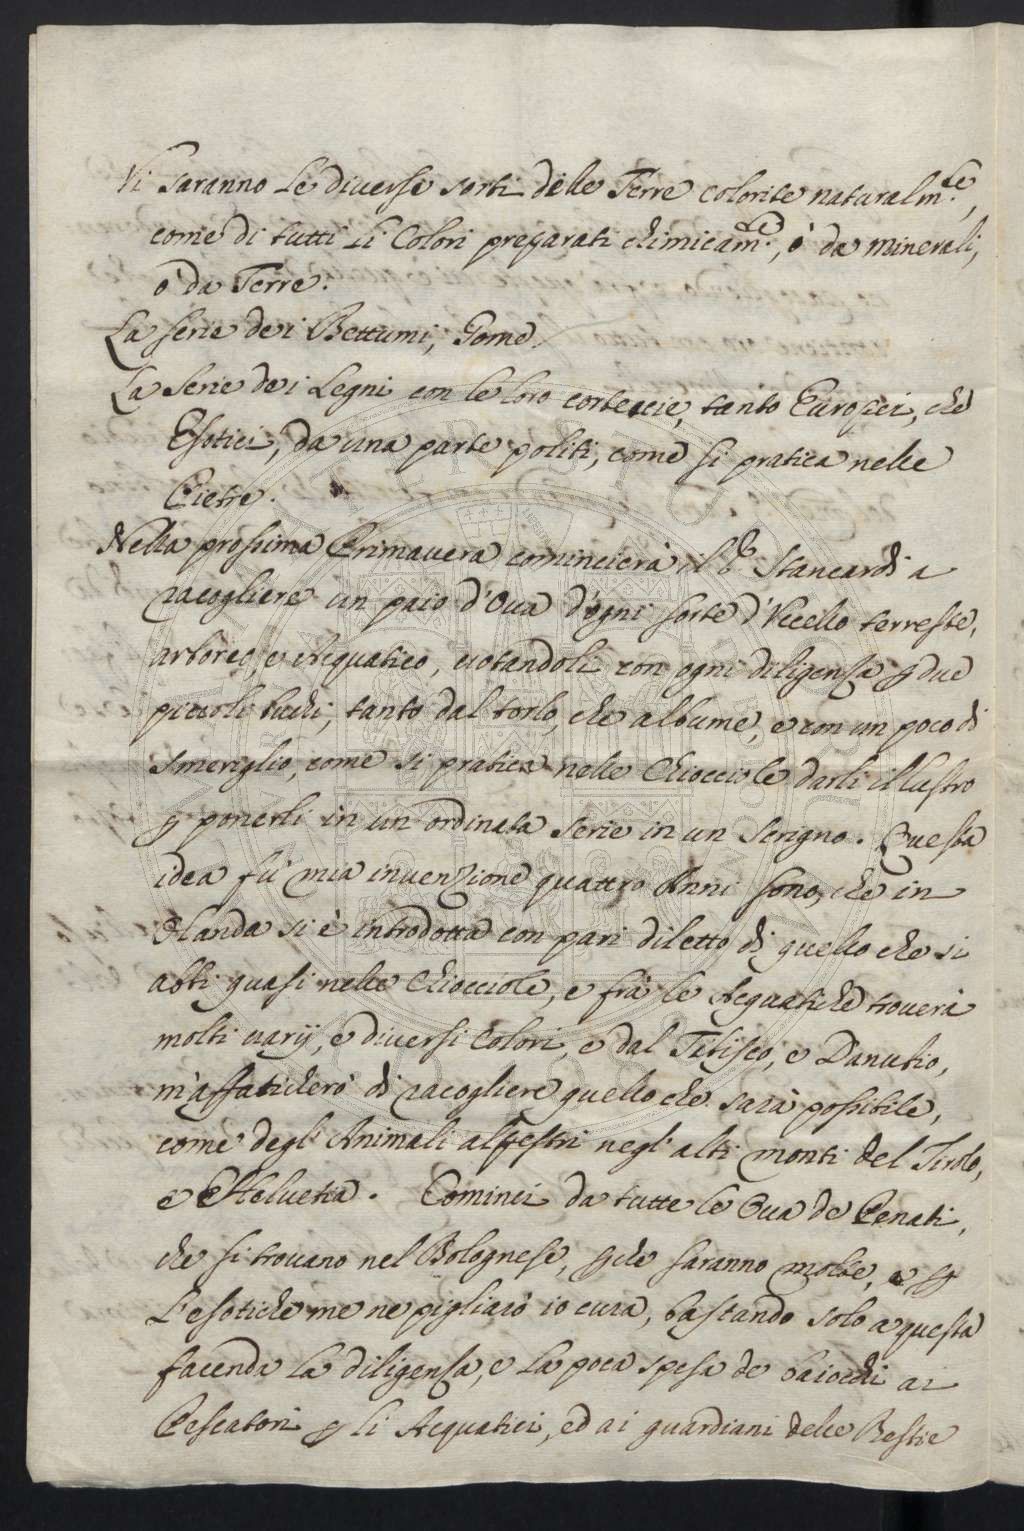 Vi saranno le diverse sorti delle Terre colorite naturalm.te,
come di tutti li Colori preparati chimicam.te, ò da minerali,
ò da Terre.
La serie dei Bettumi, Gome.
La serie dei Legni con le loro cortecie, tanto Europei, che
Esotici, da una parte politi, come si pratica nelle
Pietre.
Nella prossima Primavera comincierà il Stancardi a
racogliere un paio d'Ova d'ogni sorte d'Vccello terreste,
arboreo, e Acquatico, votandoli con ogni diligenza p due
piccoli buchi, tanto dal torlo, che albume, e con un poco di
smeriglio, come si pratica nelle Chiocciole darli il lustro
p ponerli in un ordinata serie in un Scrigno. Questa
idea fù mia invenzione quattro Anni sono, che in
Olanda si è introdotta con pari diletto di quello che si
abbi quasi nelle Chiocciole, e frà le Acquatiche troverà
molti varij, e diversi Colori, e dal Tibisco, e Danubio,
m'affaticherò di racogliere quello che sarà possibile,
come degl'Animali alpestri negl'alti monti del Tirolo,
e Helvetia. Cominci da tutte le Ova de Penati,
che si trovano nel Bolognese, pche saranno molte, e p
l'esotiche me ne pigliarò io cura, bastando solo a questa
facenda la diligenza, e la poca spesa de baiochi ai
Pescatori p li Acquatici, ed ai guardiani delle Bestie